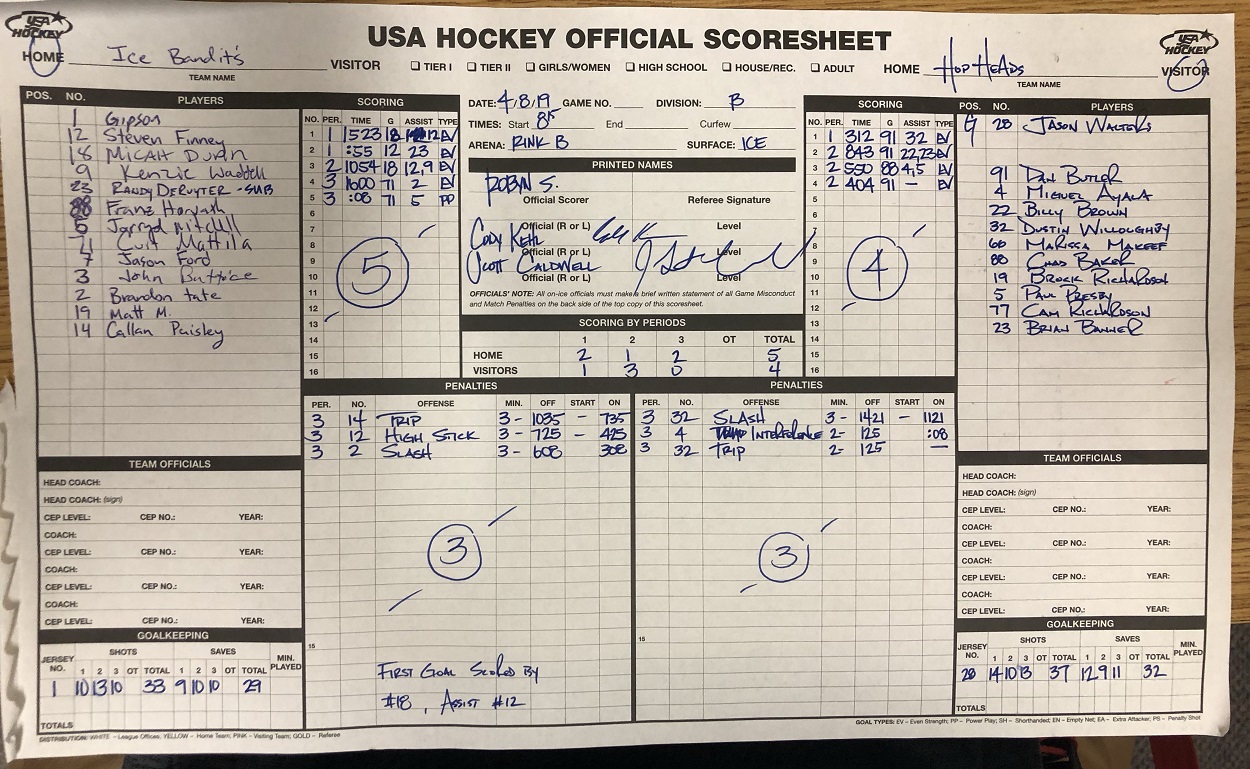 USA HOCKEY
USA HOCKEY OFFICIAL SCORESHEET
USA HOCKEY
HOME Ice Bandit's VISITOR
TEAM NAME
TIER I TIER II GIRLS/WOMEN HIGH SCHOOL HOUSE/REC. ADULT
HOME HOP HEADS VISITOR
TEAM NAME
POS. NO. PLAYERS
1 Gipson
12 Steven Finney
18 MICAH DUNN
9 Kenzie Waddell
23 RANDY DERUYTER - SUB
88 Franz Horvath
5 Jarryd Mitchell
Curt Mattila
7 Jason Ford
3 John Buttice
2 Brandon tate
19 Matt M.
14 Callan Paisley
SCORING
NO. PER. TIME G ASSIST TYPE
1 1 1523 18 12 EV
2 1 :55 12 23 EV
3 2 1054 18 12,9 EV
4 3 1600 71 2 EV
5 3 :08 71 5 PP
6
7
8
9
10
11
12
13
14
15
16
5
DATE: 4/8/19 GAME NO. DIVISION: B
TIMES: Start 85 End Curfew
ARENA: RINK B SURFACE: ICE
PRINTED NAMES
ROBYN S.
Official Scorer Referee Signature
CODY KEHL
Official (R or L) Level
SCOTT CALDWELL
Official (R or L) Level
Official (R or L) Level
OFFICIALS' NOTE: All on-ice officials must make a brief written statement of all Game Misconduct
and Match Penalties on the back side of the top copy of this scoresheet.
SCORING BY PERIODS
1 2 3 OT TOTAL
HOME 2 1 2 5
VISITORS 1 3 0 4
SCORING
NO. PER. TIME G ASSIST TYPE
1 1 312 91 32 EV
2 2 843 91 22,23 EV
3 2 550 88 4,5 EV
4 2 404 91 — EV
5
6
7
8
9
10
11
12
13
14
15
16
4
POS. NO. PLAYERS
G 20 JASON WALTERS
91 DAN BUTLER
4 MIGUEL AYALA
22 BILLY BROWN
32 DUSTIN WILLOUGHBY
66 MARISSA MAKEEF
88 CHAD BAKER
19 BROCK RICHARDSON
5 PAUL PRESBY
77 CAM RICHARDSON
23 BRIAN BANNER
PENALTIES
PER. NO. OFFENSE MIN. OFF START ON
3 14 TRIP 3 - 1035 - 735
3 12 HIGH STICK 3 - 725 - 425
3 2 SLASH 3 - 608 308
3
15
FIRST GOAL SCORED BY
#18, ASSIST #12
PENALTIES
PER. NO. OFFENSE MIN. OFF START ON
3 32 SLASH 3 - 1421 - 1121
3 4 INTERFERENCE 2 - 125 :08
3 32 TRIP 2 - 125 —
3
15
TEAM OFFICIALS
HEAD COACH:
HEAD COACH: (sign)
CEP LEVEL: CEP NO.: YEAR:
COACH:
CEP LEVEL: CEP NO.: YEAR:
COACH:
CEP LEVEL: CEP NO.: YEAR:
COACH:
CEP LEVEL: CEP NO.: YEAR:
GOALKEEPING
JERSEY NO. SHOTS SAVES MIN. PLAYED
1 2 3 OT TOTAL 1 2 3 OT TOTAL
1 10 13 10 33 9 10 10 29
TOTALS
TEAM OFFICIALS
HEAD COACH:
HEAD COACH: (sign)
CEP LEVEL: CEP NO.: YEAR:
COACH:
CEP LEVEL: CEP NO.: YEAR:
COACH:
CEP LEVEL: CEP NO.: YEAR:
COACH:
CEP LEVEL: CEP NO.: YEAR:
GOALKEEPING
JERSEY NO. SHOTS SAVES MIN. PLAYED
1 2 3 OT TOTAL 1 2 3 OT TOTAL
20 14 10 13 37 12 9 11 32
TOTALS
DISTRIBUTION: WHITE – League Offices, YELLOW – Home Team; PINK – Visiting Team; GOLD – Referee
GOAL TYPES: EV – Even Strength; PP – Power Play; SH – Shorthanded; EN – Empty Net; EA – Extra Attacker; PS – Penalty Shot